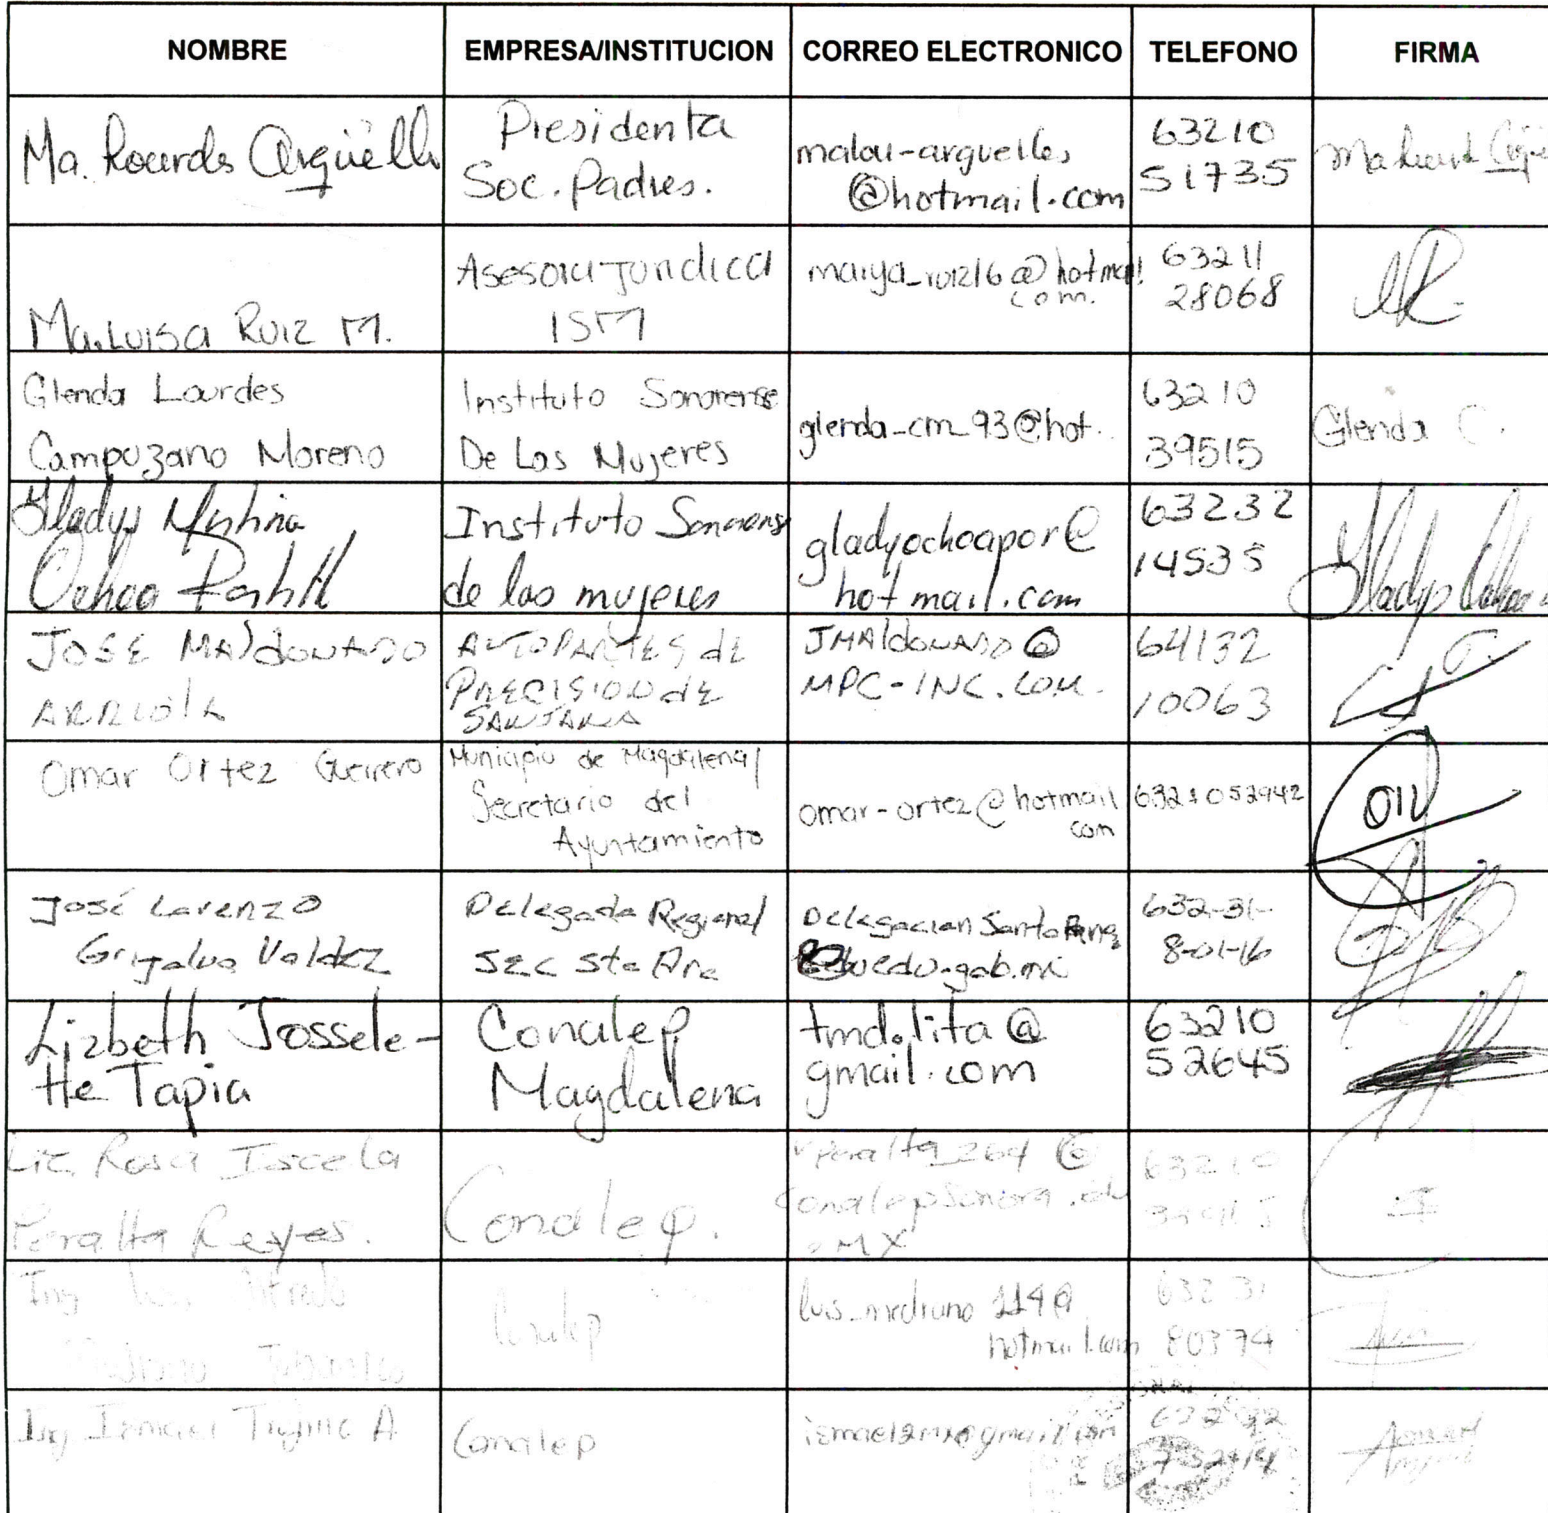 NOMBRE EMPRESA/INSTITUCION CORREO ELECTRONICO TELEFONO FIRMA
Ma. Lourdes Argüelle
Presidenta
Soc. Padres.
malou-arguelles
@hotmail.com
63210
51735
Ma. Luisa Ruiz M.
Asesora Juridica
ISM
marya_ruiz16@hotmail.
com.
63211
28068
Glenda Lourdes
Campuzano Moreno
Instituto Sonorense
De Las Mujeres
glenda_cm_93@hot.
63210
39515
Glenda C.
Gladys
Ochoa
Instituto Sonorense
de las mujeres
gladyochoapor@
hotmail.com
63232
14535
Gladys Ochoa
JOSE MALdoNADO
ARRIOLA
AUTOPARTES dE
PRECISION dE
SANTANA
JMALdoNADO@
MPC-INC.COM.
64132
10063
Omar Ortez Guerrero
Municipio de Magdalena/
Secretario del
Ayuntamiento
omar-ortez@hotmail
com
6321052942
José Lorenzo
Grijalva Valdez
Delegado Regional
SEC Sta Ana
Delegacion Santa Ana
632-31-
8-01-16
Lizbeth Jossele-
tte Tapia
Conalep
Magdalena
tmd.lita@
gmail.com
63210
52645
Lic. Rosa Iscela
Peralta Reyes.
Conalep.
conalepsonora.ed
.MX
63210
Ing Luis Alfredo
Conalep
luis_medrano 114@
hotmail.com
632 31
80374
Ing Ismael Trujillo A
Conalep